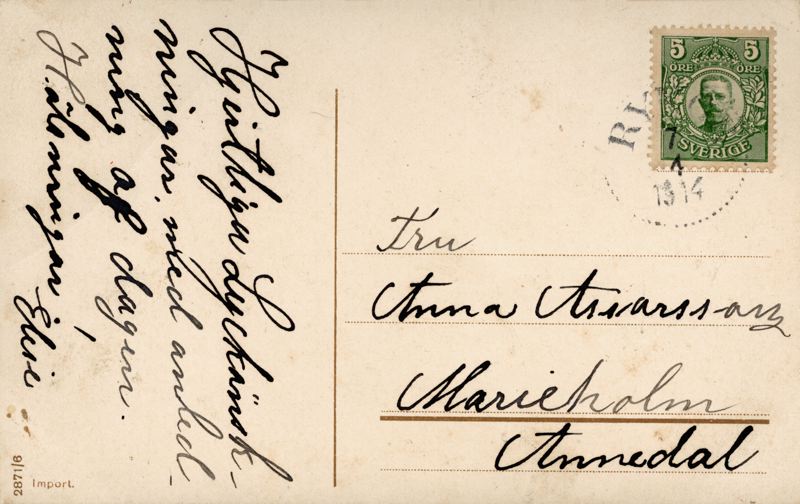 Hjertliga Lyckönsk-
ningar, med anled-
ning af dagen.
Hälsningar,
Elise
5 5
ÖRE ÖRE
SVERIGE
7
1
1914
Fru
Anna
Marieholm
Annedal
2871/6
Import.